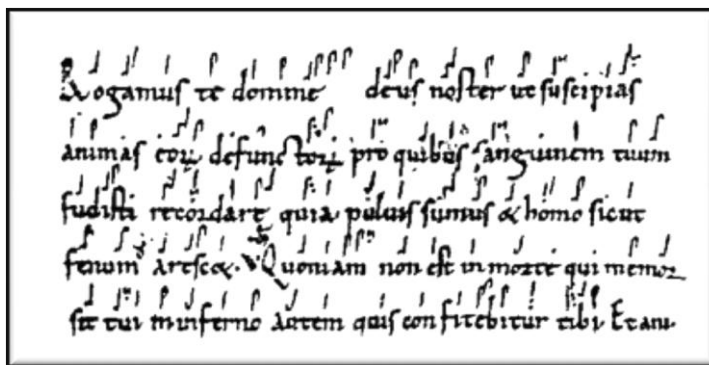 Rogamus te domine deus noster ut suscipias
animas eoꝝ defunctoꝝ pro quibus sanguinem tuum
fudisti recordare quia puluis sumus & homo sicut
fenum aresc&. Quoniam non est in morte qui memor
sit tui in inferno autem quis confitebitur tibi Et anı